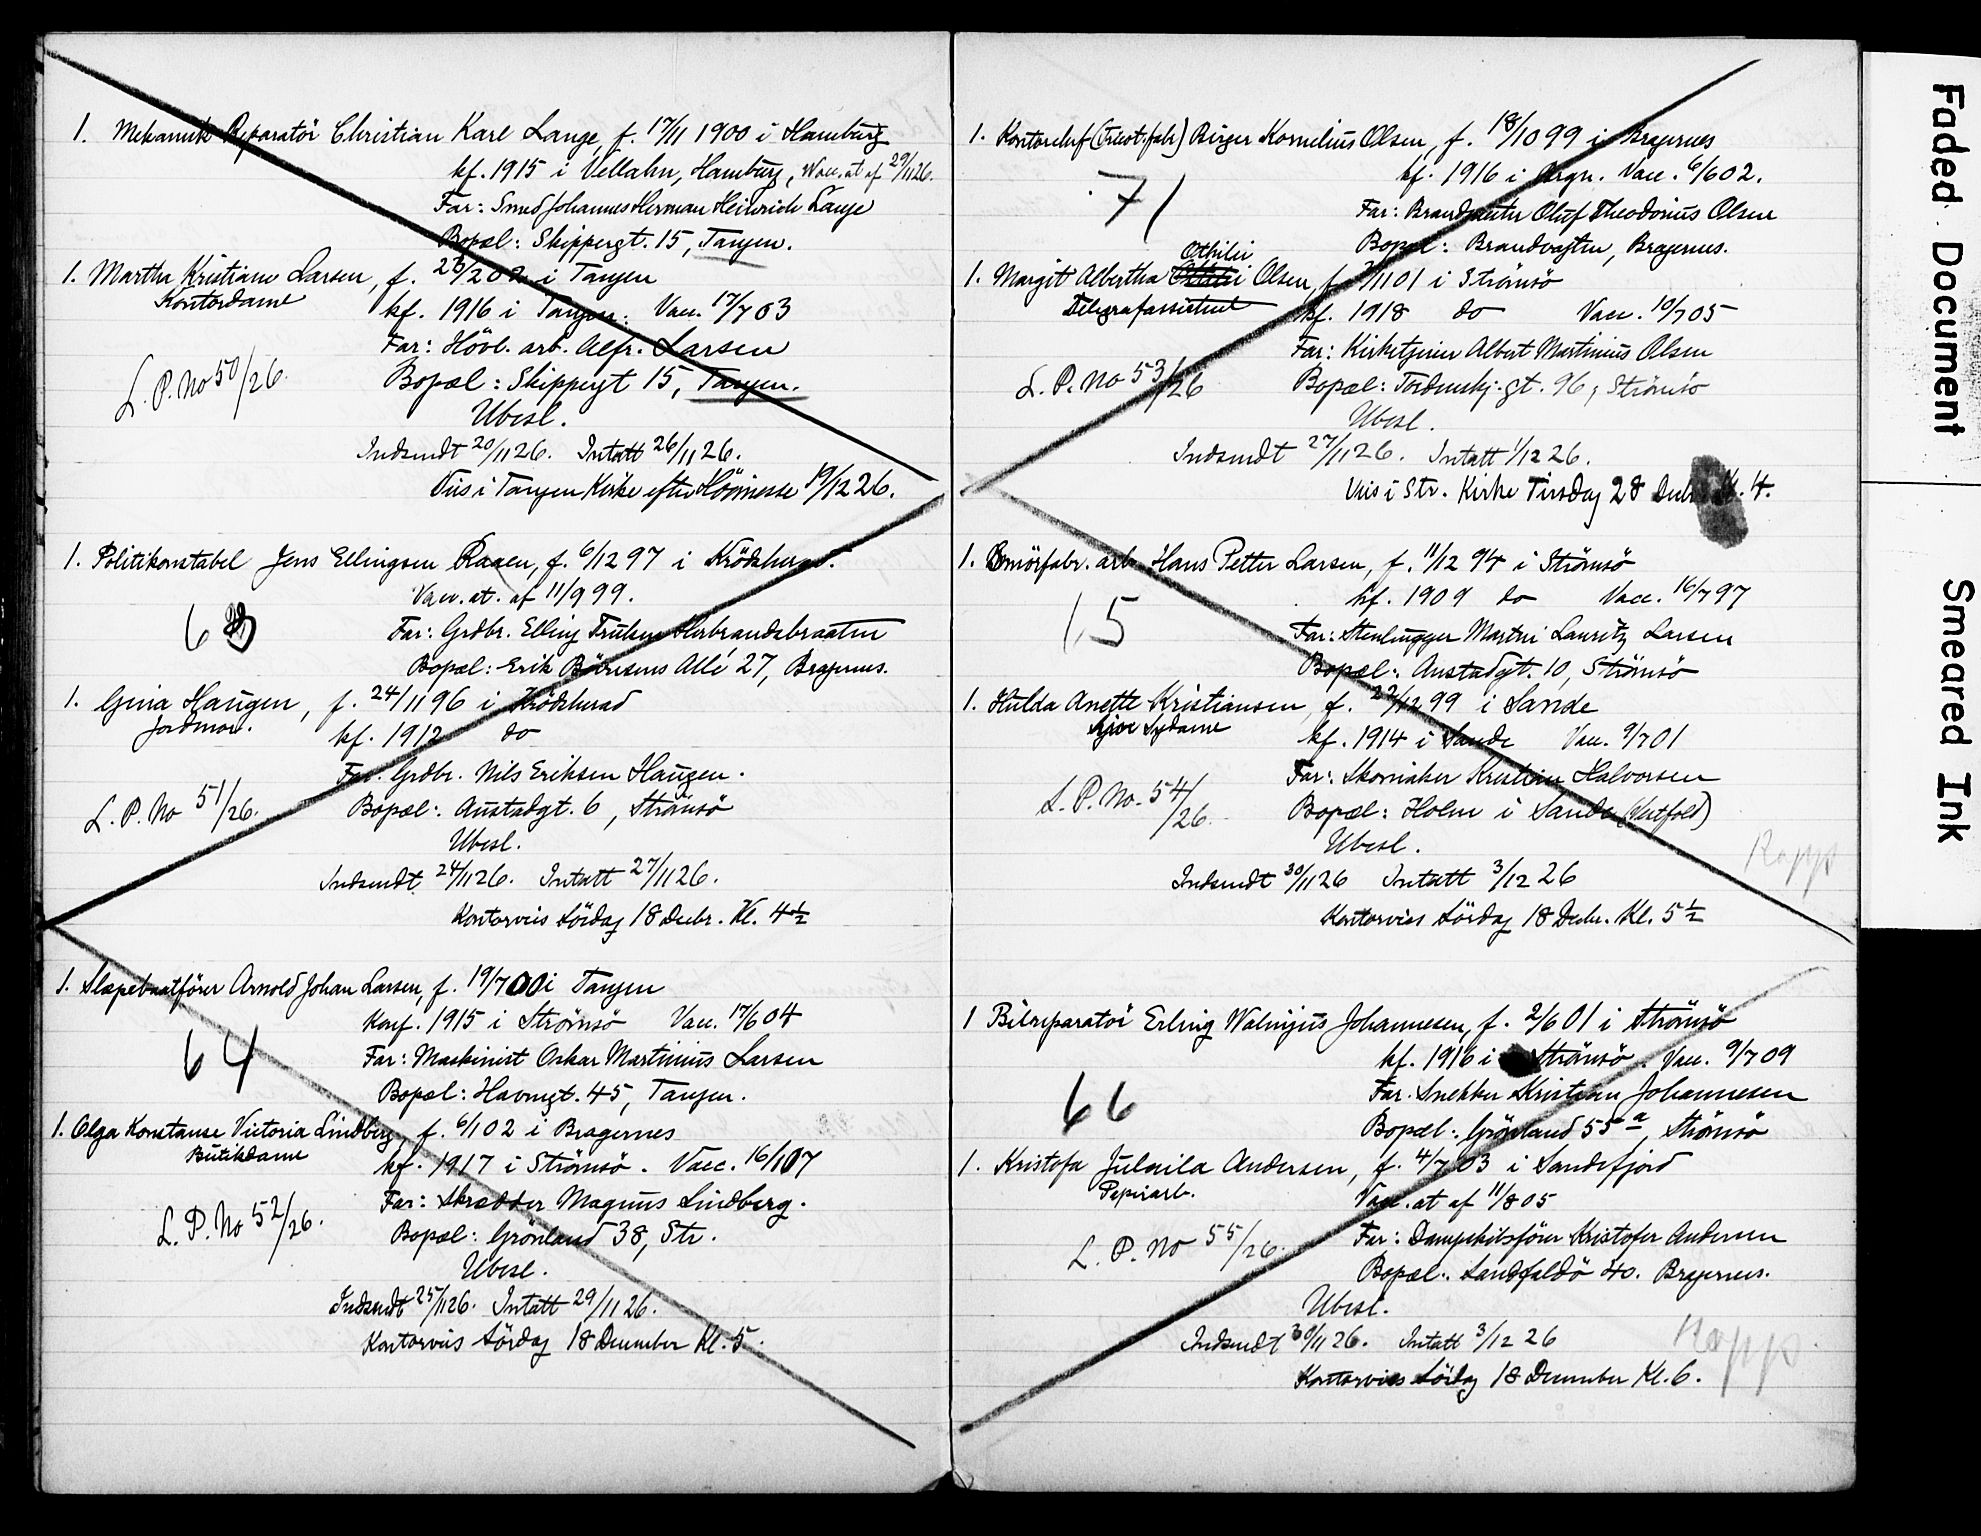 1. Mekanik Reparatör Christian Karl Lange, f. 17/11 1900 i Hamburg
kf. 1915 i Vellahn, Hamburg, Vacc. at af 29/11 26.
Far: Smed Johannes Herman Heinrich Lange
Bopæl: Skippergt. 15, Tangen.
1. Martha Kristiane Larsen, f. 23/2 02 i Tangen
Kontordame
kf. 1916 i Tangen. Vacc. 17/7 03
Far: Hövl. arb. Alfr. Larsen
L. P. No 50/26.
Bopæl: Skippergt 15, Tangen.
Ubesl.
Indsendt 20/11 26. Intatt 26/11 26.
Viis i Tangen Kirke efter Höimesse 19/12 26.
1. Politikonstabel Jens Ellingsen Raaen, f. 6/12 97 i Krödsherad.
Vacc. at. af 11/9 99.
63
Far: Grdbr. Elling Trulsen Herbrandsbraaten
Bopæl: Erik Börresens Allé 27, Bragernes.
1. Gina Haugen, f. 24/11 96 i Krödsherad
Jordmor.
kf. 1912 do
Far. Grdbr. Nils Eriksen Haugen.
L. P. No 51/26.
Bopæl: Austadgt. 6, Strömsö
Ubesl.
Indsendt 24/11 26. Intatt 27/11 26.
Kontorviis Lördag 18 Decbr. Kl. 4 1/2
1. Slæpebaatförer Arnold Johan Larsen, f. 19/7 00 i Tangen
Konf. 1915 i Strömsö Vacc. 17/6 04
64
Far: Maskinist Oskar Martinius Larsen
Bopæl: Havnegt. 45, Tangen.
1. Olga Konstanse Victoria Lindberg, f. 6/1 02 i Bragernes
Butikdame
kf. 1917 i Strömsö. Vacc. 16/10 7
Far: Skrædder Magnus Lindberg.
L. P. No 52/26.
Bopæl: Grönland 38, Str.
Ubesl.
Indsendt 25/11 26. Intatt 29/11 26.
Kontorviis Lördag 18 December Kl. 5.
1. Kontorchef (Tricot. fabr) Birger Kornelius Olsen, f. 18/10 99 i Bragernes
kf. 1916 i Brgn. Vacc. 6/6 02.
71
Far: Brandmester Oluf Theodorius Olsen
Bopæl: Brandvagten, Bragernes.
Othilie
1. Margit Albertha Olsen, f. 7/11 01 i Strömsö
Telegrafassistent
kf. 1918 do Vacc. 10/7 05
Far: Kirketjener Albert Martinius Olsen
L. P. No 53/26
Bopæl: Tordenskj. gt. 96, Strömsö
Ubesl.
Indsendt 27/11 26. Intatt 1/12 26.
Viis i Str. Kirke Tirsdag 28 Decbr Kl. 4.
1. arb. Hans Petter Larsen, f. 11/12 94 i Strömsö
kf. 1909 do Vacc. 16/7 97
15
Far: Stenhugger Martin Lauritz Larsen
Bopæl: Austadgt. 10, Strömsö
1. Hulda Anette Kristiansen, f. 22/12 99 i Sande
Sydame
kf. 1914 i Sande Vacc. 9/7 01
Far: Skomaker Kristian Halvorsen
L. P. No. 54/26.
Bopæl: Holm i Sande (Vestfold)
Ubesl.
Indsendt 30/11 26 Intatt 3/12 26
Kopps
Kontorviis Lördag 18 Decbr. Kl. 5 1/2
1 Bilreparatör Erling Johannesen, f. 2/6 01 i Strömsö
kf. 1916 i Strömsö. Vacc. 9/7 09
Far. Snekker Kristian Johannesen
66
Bopæl: Grönland 55 a, Strömsö
1. Kristofa Julaila Andersen, f. 4/7 03 i Sandefjord
Papirarb.
Vacc. at af 11/8 05
Far: Dampskibsförer Kristofer Andersen
L. P. No 55/26.
Bopæl: Landfaldö 40. Bragernes.
Ubesl.
Indsendt 30/11 26. Intatt 3/12 26
Kopps
Kontorviis Lördag 18 December Kl. 6.
Faded Document
Smeared Ink